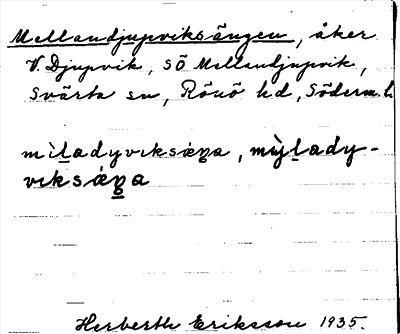 Mellandjupviksängen, åker
V. Djupvik, SÖ Mellandjupvik,
Svärta sn, Rönö hd, Söderm.l.
mìladyviksáŋa, mìjlady-
viksáŋa
Herberth Eriksson 1935.